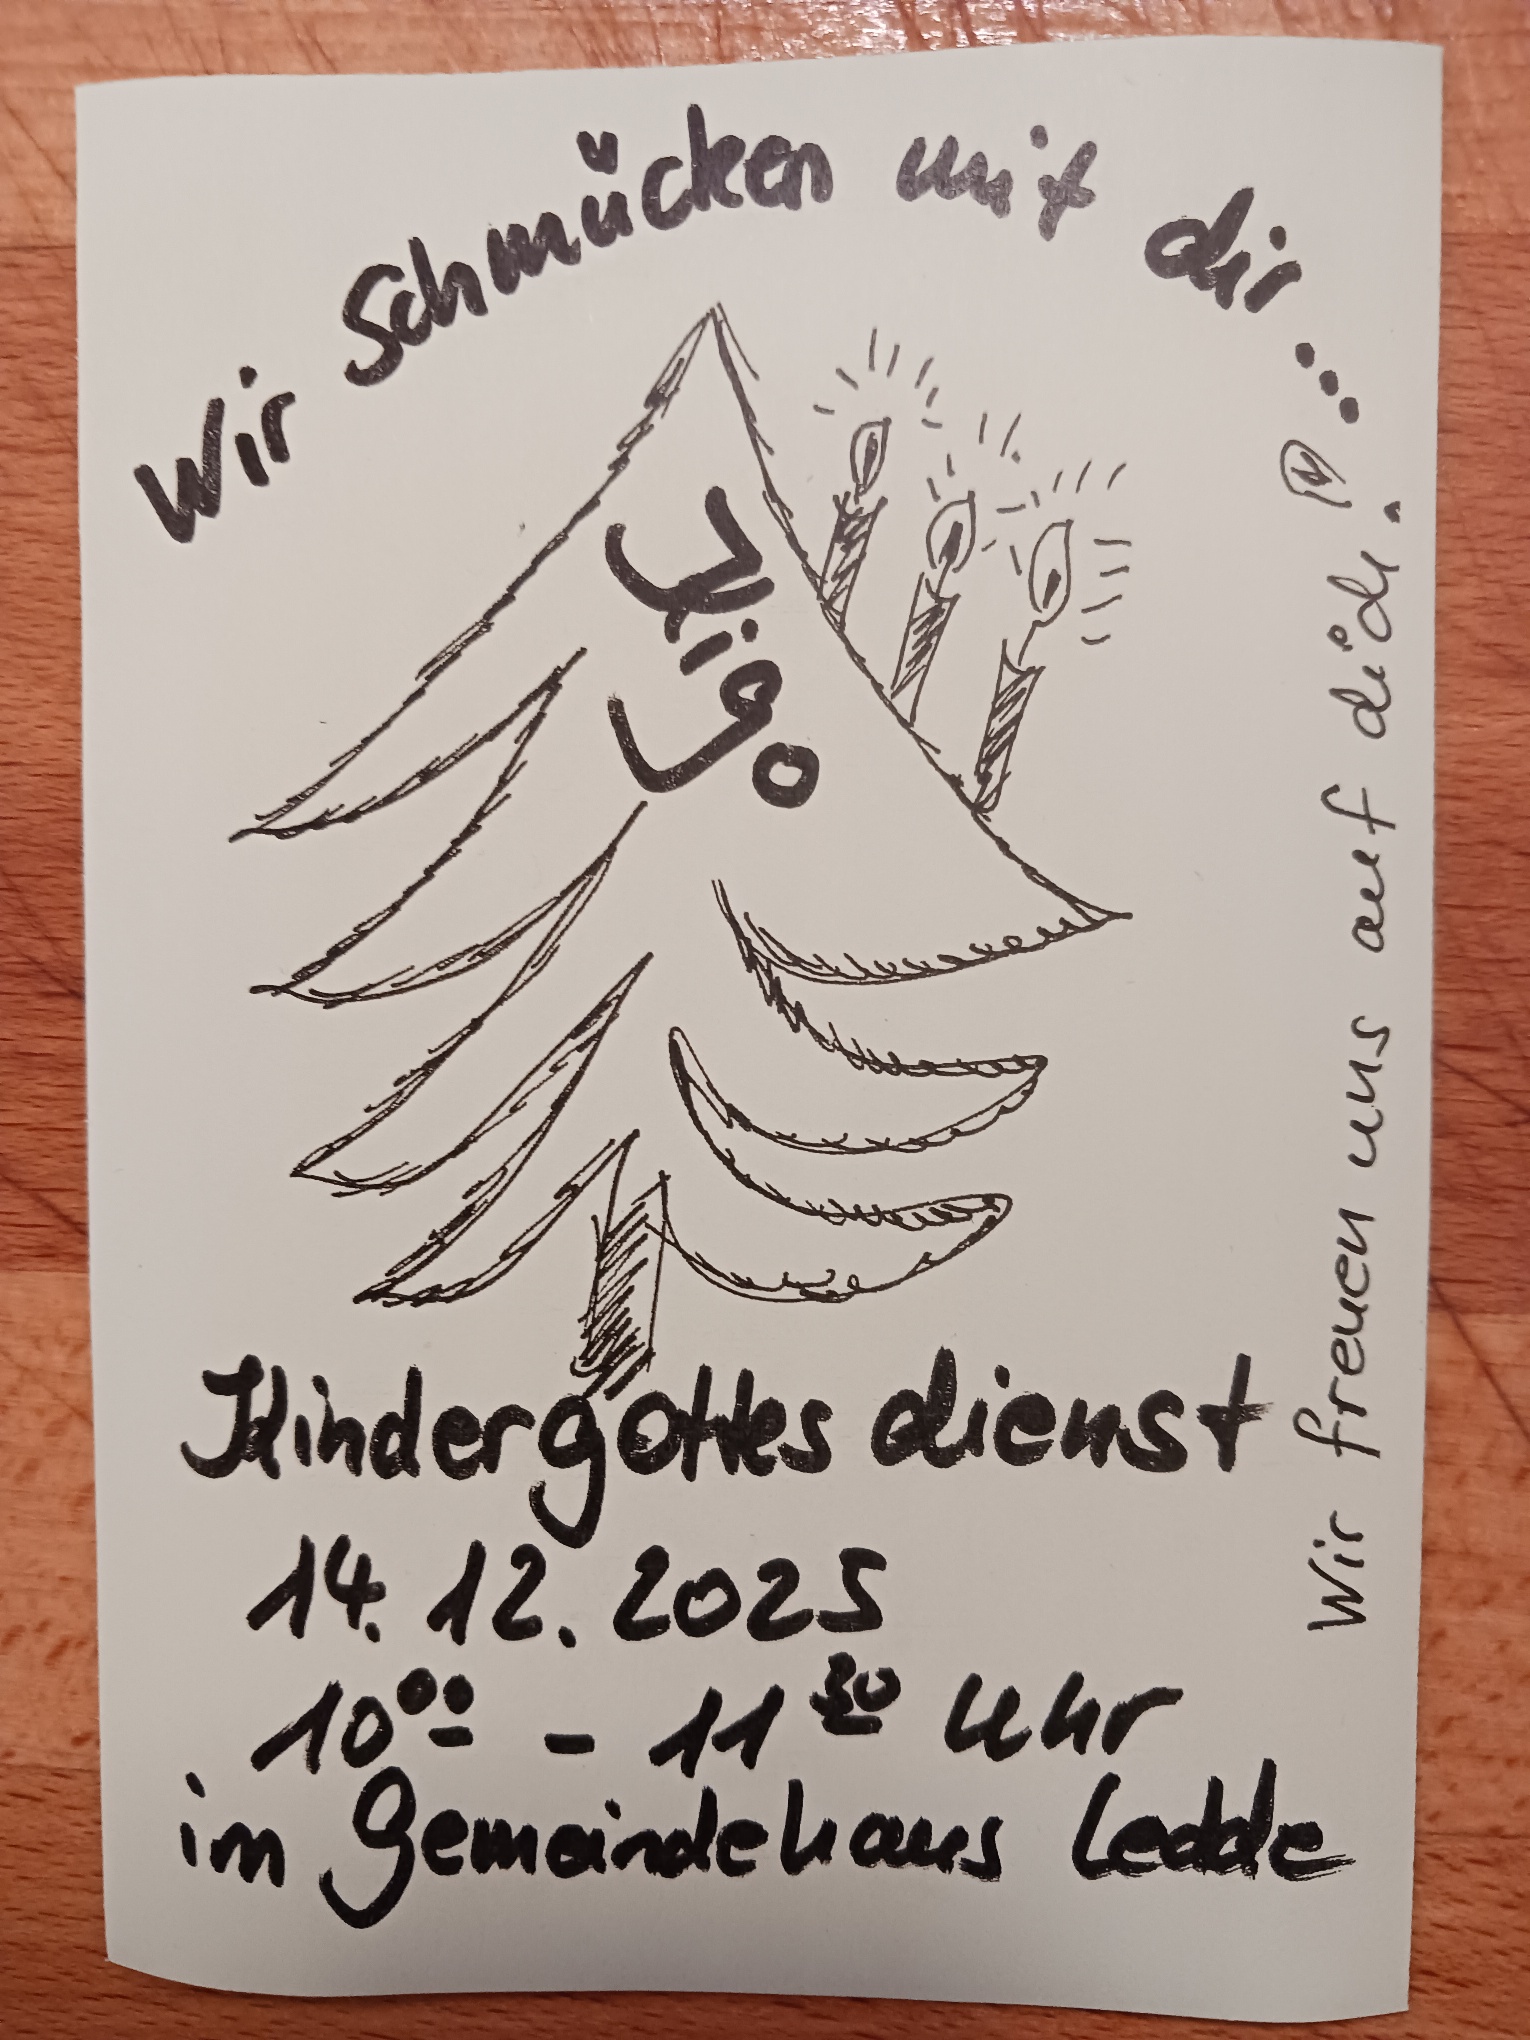 Wir Schmücken mit dir...
KiGo
Kindergottesdienst
14.12.2025
10⁰⁰ - 11³⁰ Uhr
im Gemeindehaus Ledde
Wir freuen uns auf dich!